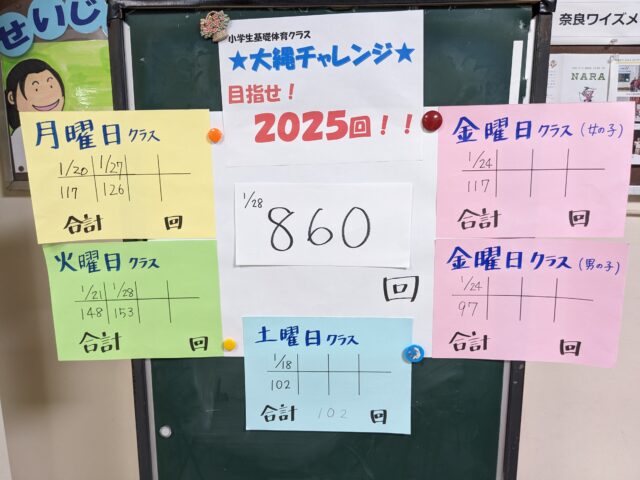 せいじ
奈良ワイズメ
NARA
小学生基礎体育クラス
★大縄チャレンジ★
目指せ！
2025回！！
1/28
860
回
月曜日クラス
1/20 1/27
117 126
合計 回
火曜日クラス
1/21 1/28
148 153
合計 回
土曜日クラス
1/18
102
合計 102 回
金曜日クラス(女の子)
1/24
117
合計 回
金曜日クラス(男の子)
1/24
97
合計 回